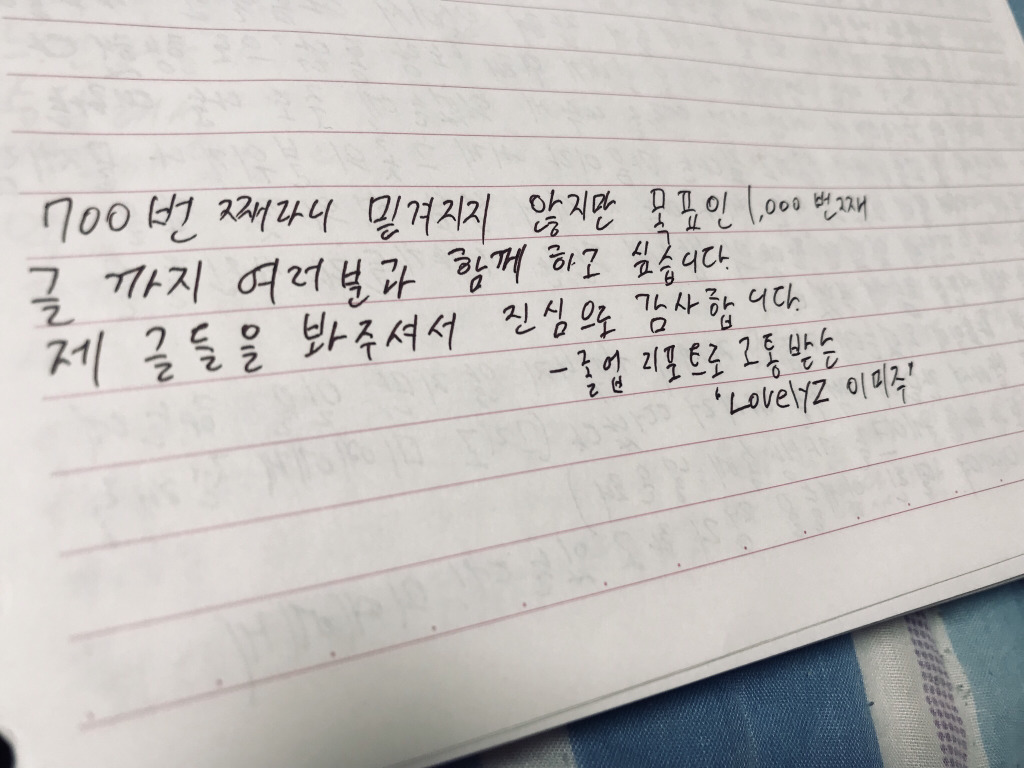 700번 째라니 믿겨지지 않지만 목표인 1,000 번째
글 까지 여러분과 함께 하고 싶습니다.
제 글들을 봐주셔서 진심으로 감사합니다.
- 졸업 리포트로 고통 받는
'Lovelyz 이미주'